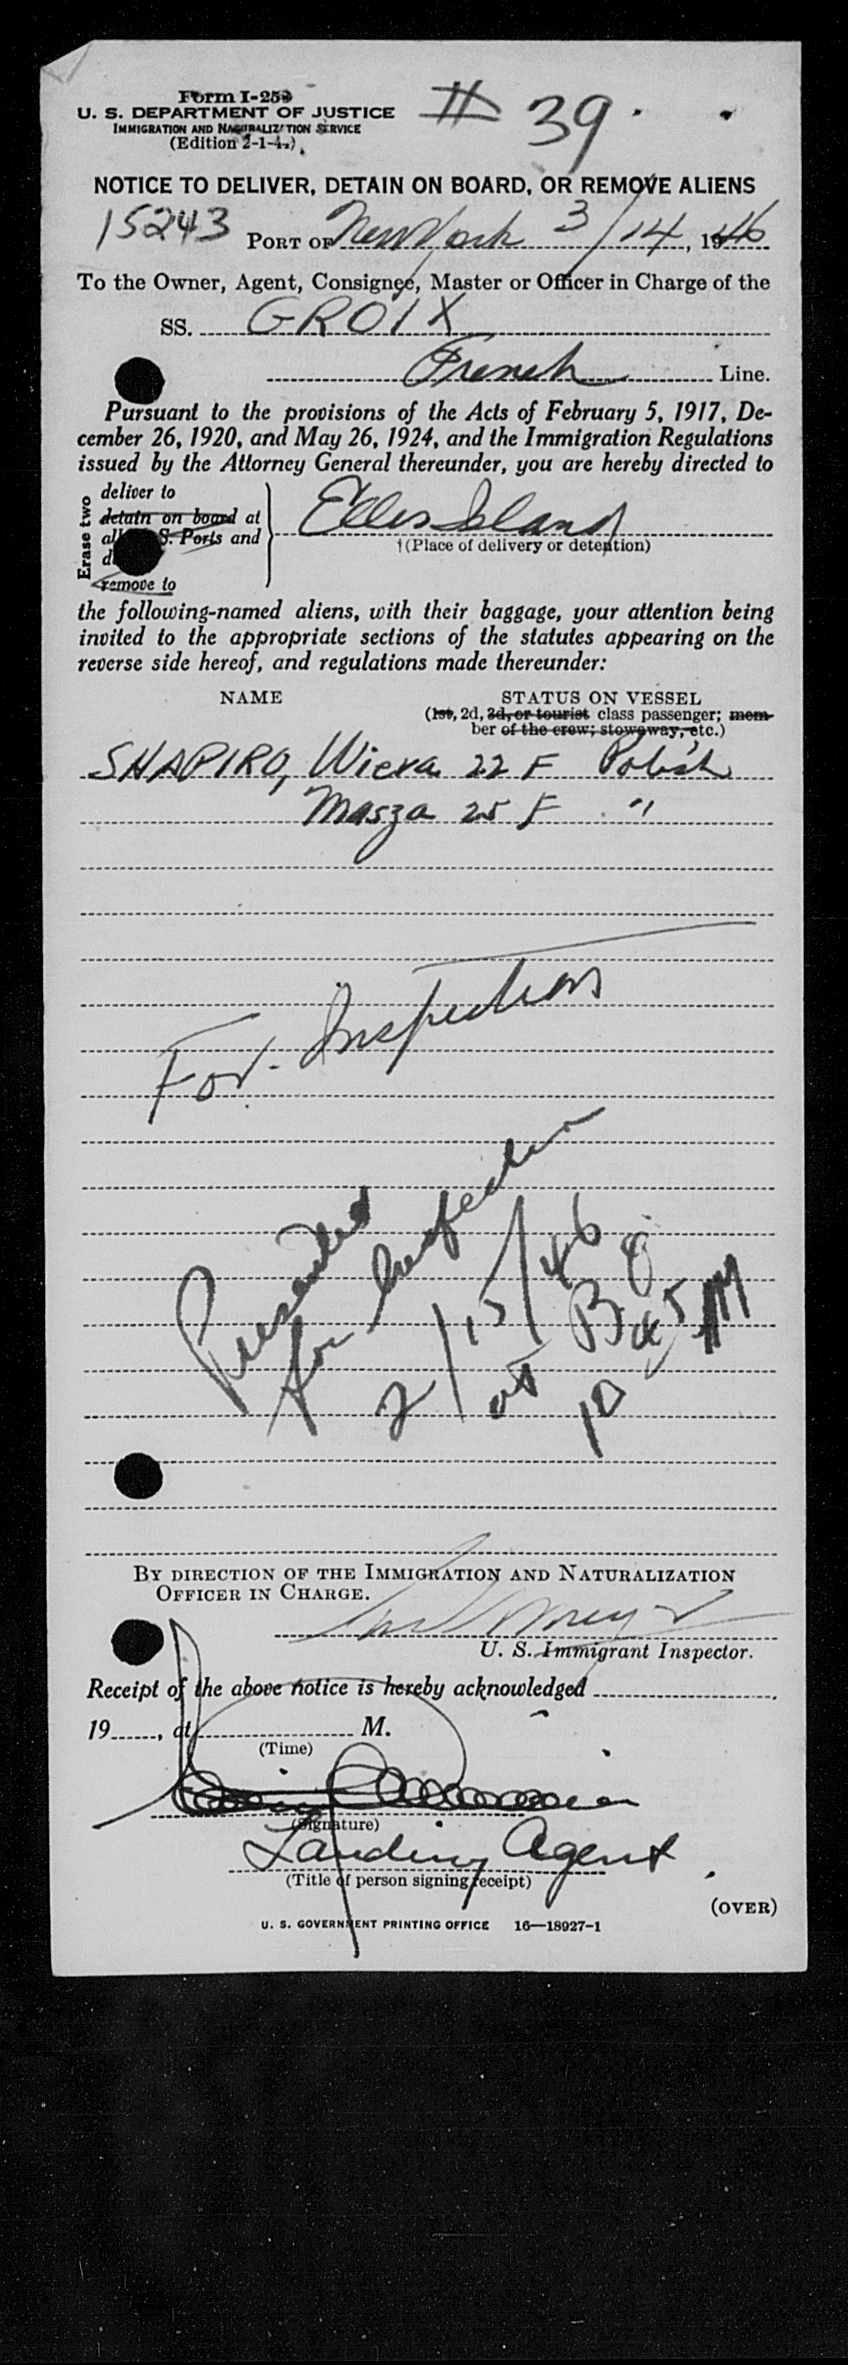 Form I-259
U. S. DEPARTMENT OF JUSTICE
IMMIGRATION AND NATURALIZATION SERVICE
(Edition 2-1-4.)
# 39
NOTICE TO DELIVER, DETAIN ON BOARD, OR REMOVE ALIENS
15243 PORT OF New York 3/14, 1946
To the Owner, Agent, Consignee, Master or Officer in Charge of the
SS. GROIX
French Line.
Pursuant to the provisions of the Acts of February 5, 1917, De-
cember 26, 1920, and May 26, 1924, and the Immigration Regulations
issued by the Attorney General thereunder, you are hereby directed to
Erase two
deliver to
detain on board at
all S. Ports and
remove to
Ellis Island
†(Place of delivery or detention)
the following-named aliens, with their baggage, your attention being
invited to the appropriate sections of the statutes appearing on the
reverse side hereof, and regulations made thereunder:
NAME STATUS ON VESSEL
(1st, 2d, 3d, or tourist class passenger; mem-
ber of the crew; stowaway, etc.)
SHAPIRO, Wiera 22 F Polish
Masza 25 F "
For Inspection
Presented
for Inspection
2/15/46
at B.O.
10 45 AM
BY DIRECTION OF THE IMMIGRATION AND NATURALIZATION
OFFICER IN CHARGE.
U. S. Immigrant Inspector.
Receipt of the above notice is hereby acknowledged
19, at M.
(Time)
(Signature)
Landing Agent
(Title of person signing receipt)
(OVER)
U. S. GOVERNMENT PRINTING OFFICE 16—18927-1